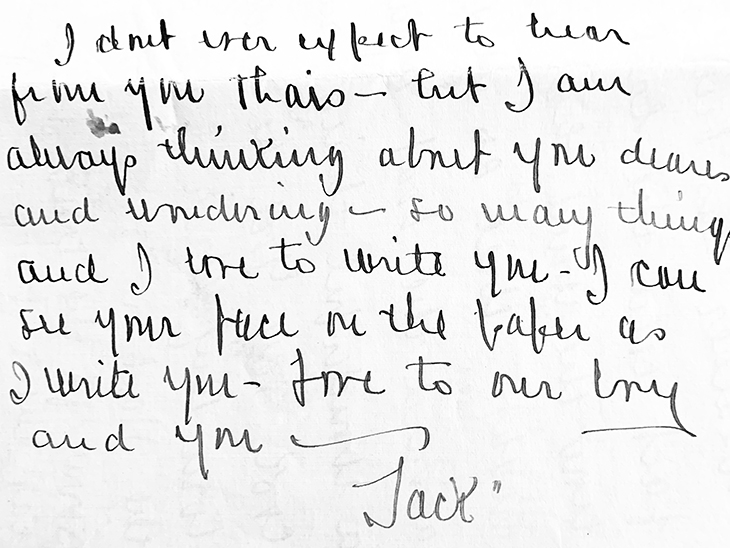 I dont ever expect to hear
from you Thais – but I am
always thinking about you dearest
and wondering – so many things
and I love to write you – I can
see your face on the paper as
I write you – Love to our boy
and you
Jack"